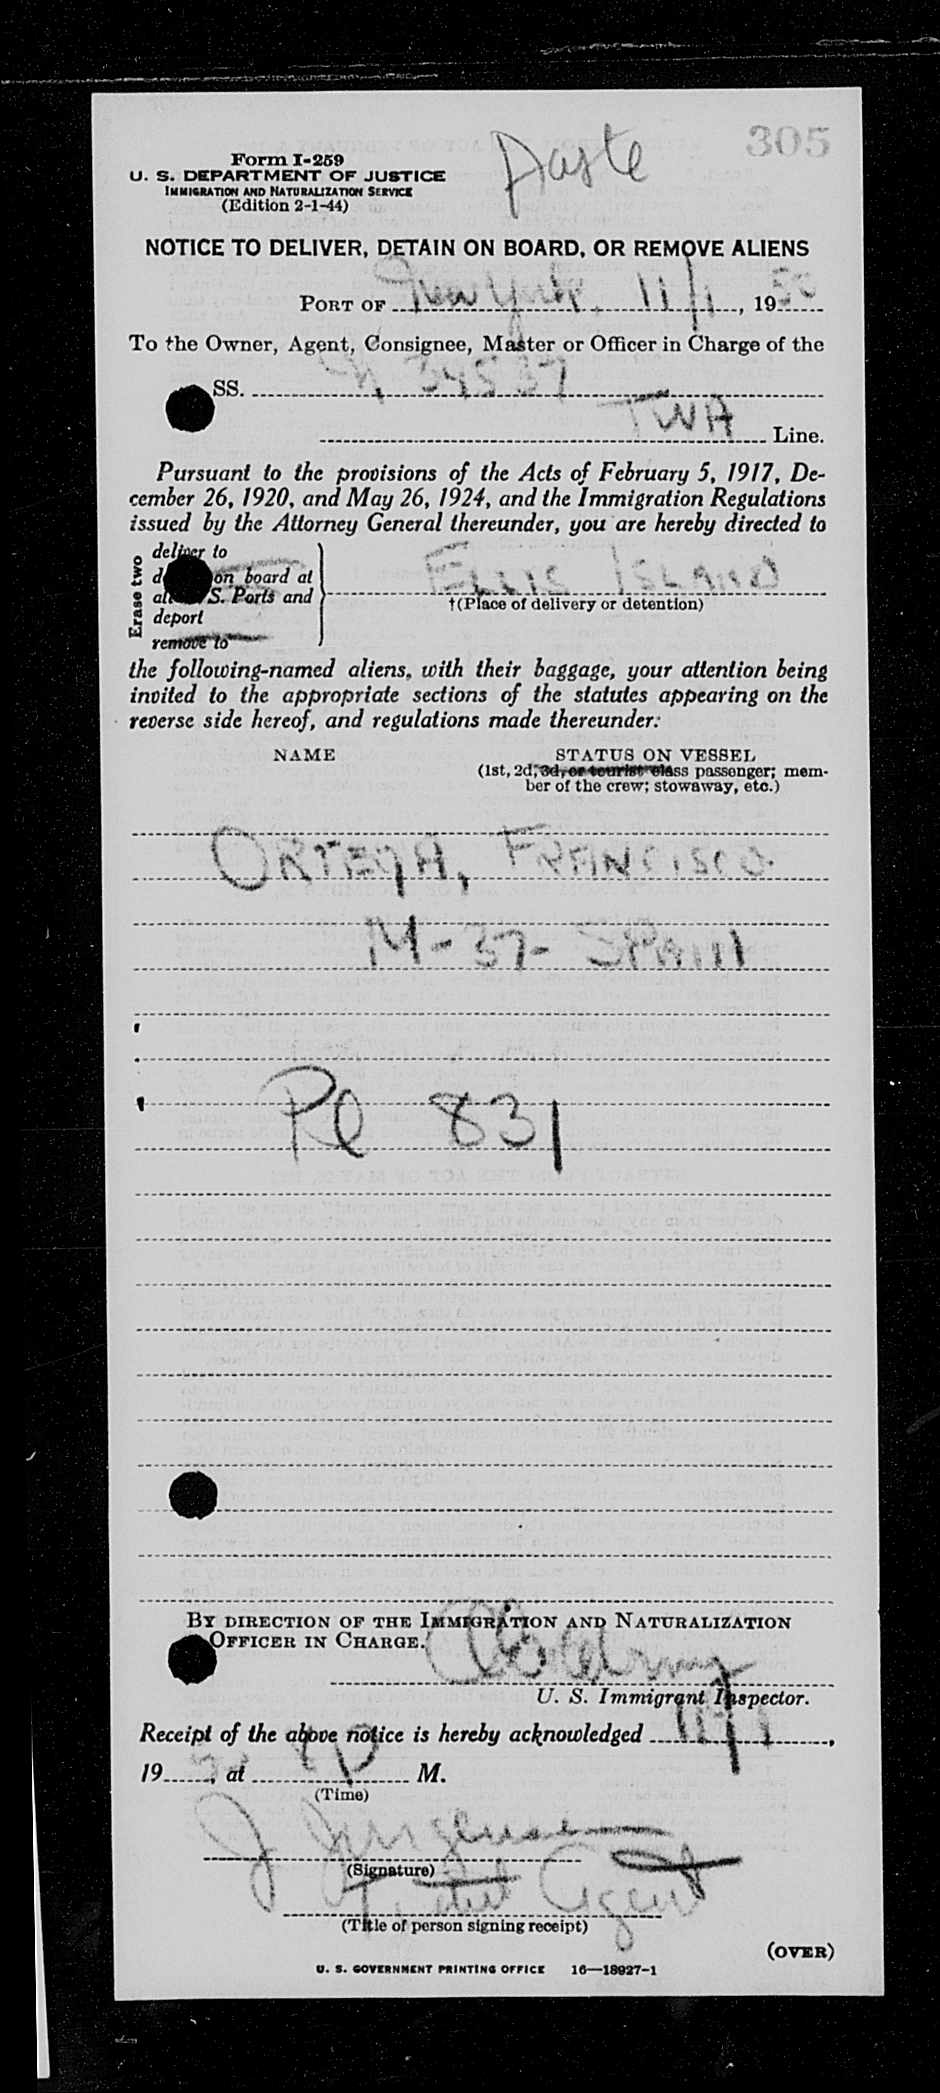 305
paste
Form I-259
U. S. DEPARTMENT OF JUSTICE
IMMIGRATION AND NATURALIZATION SERVICE
(Edition 2-1-44)
NOTICE TO DELIVER, DETAIN ON BOARD, OR REMOVE ALIENS
PORT OF New York, 11/1, 1950
To the Owner, Agent, Consignee, Master or Officer in Charge of the
SS. N 34537
TWA Line.
Pursuant to the provisions of the Acts of February 5, 1917, De-
cember 26, 1920, and May 26, 1924, and the Immigration Regulations
issued by the Attorney General thereunder, you are hereby directed to
Erase two
deliver to
on board at
S. Ports and
deport
remove to
ELLIS ISLAND
†(Place of delivery or detention)
the following-named aliens, with their baggage, your attention being
invited to the appropriate sections of the statutes appearing on the
reverse side hereof, and regulations made thereunder:
NAME STATUS ON VESSEL
(1st, 2d, 3d, or tourist class passenger; mem-
ber of the crew; stowaway, etc.)
ORTEGA, FRANCISCO
M-37- SPAIN
Pl 831
BY DIRECTION OF THE IMMIGRATION AND NATURALIZATION
OFFICER IN CHARGE.
U. S. Immigrant Inspector.
Receipt of the above notice is hereby acknowledged 11/1,
19 , at P M.
(Time)
J
(Signature)
Agent
(Title of person signing receipt)
(OVER)
U. S. GOVERNMENT PRINTING OFFICE 16—18927-1